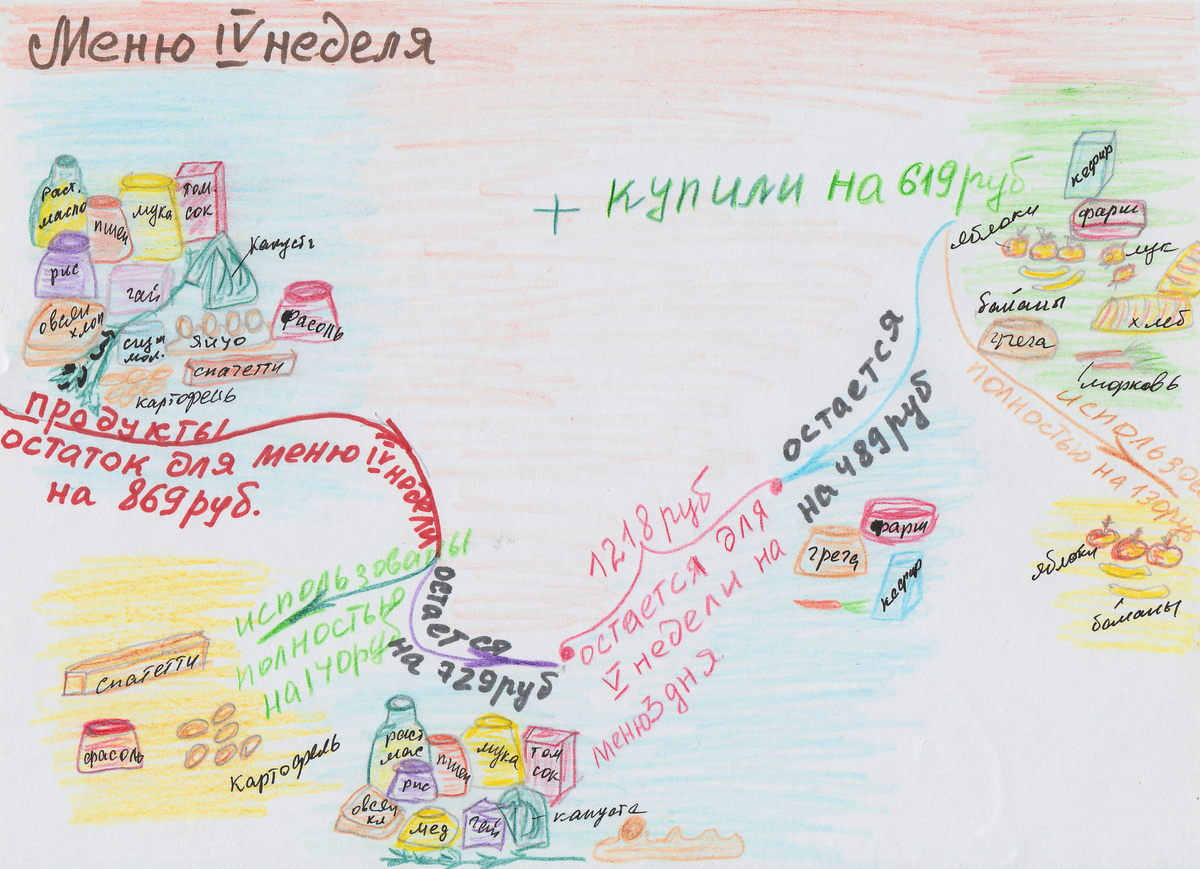 Меню IV неделя
раст.
масло
пшен
мука
том.
сок
капуста
рис
чай
овсян
хлоп
сгущ
мол.
яйцо
фасоль
спагетти
картофель
продукты
остаток для меню IV недели
на 869 руб.
+ купили на 619 руб
кефир
фарш
яблоки
лук
бананы
хлеб
греча
морковь
использов
полностью на 130 руб
яблоки
бананы
остается
на 489 руб
фарш
греча
кефир
1218 руб
остается для
V недели на
меню 3 дня
использованы
полностью
на 140 руб
спагетти
фасоль
картофель
остается
на 729 руб
раст
мас
пшен
мука
том
сок
рис
овсян
хл
мед
чай
капуста